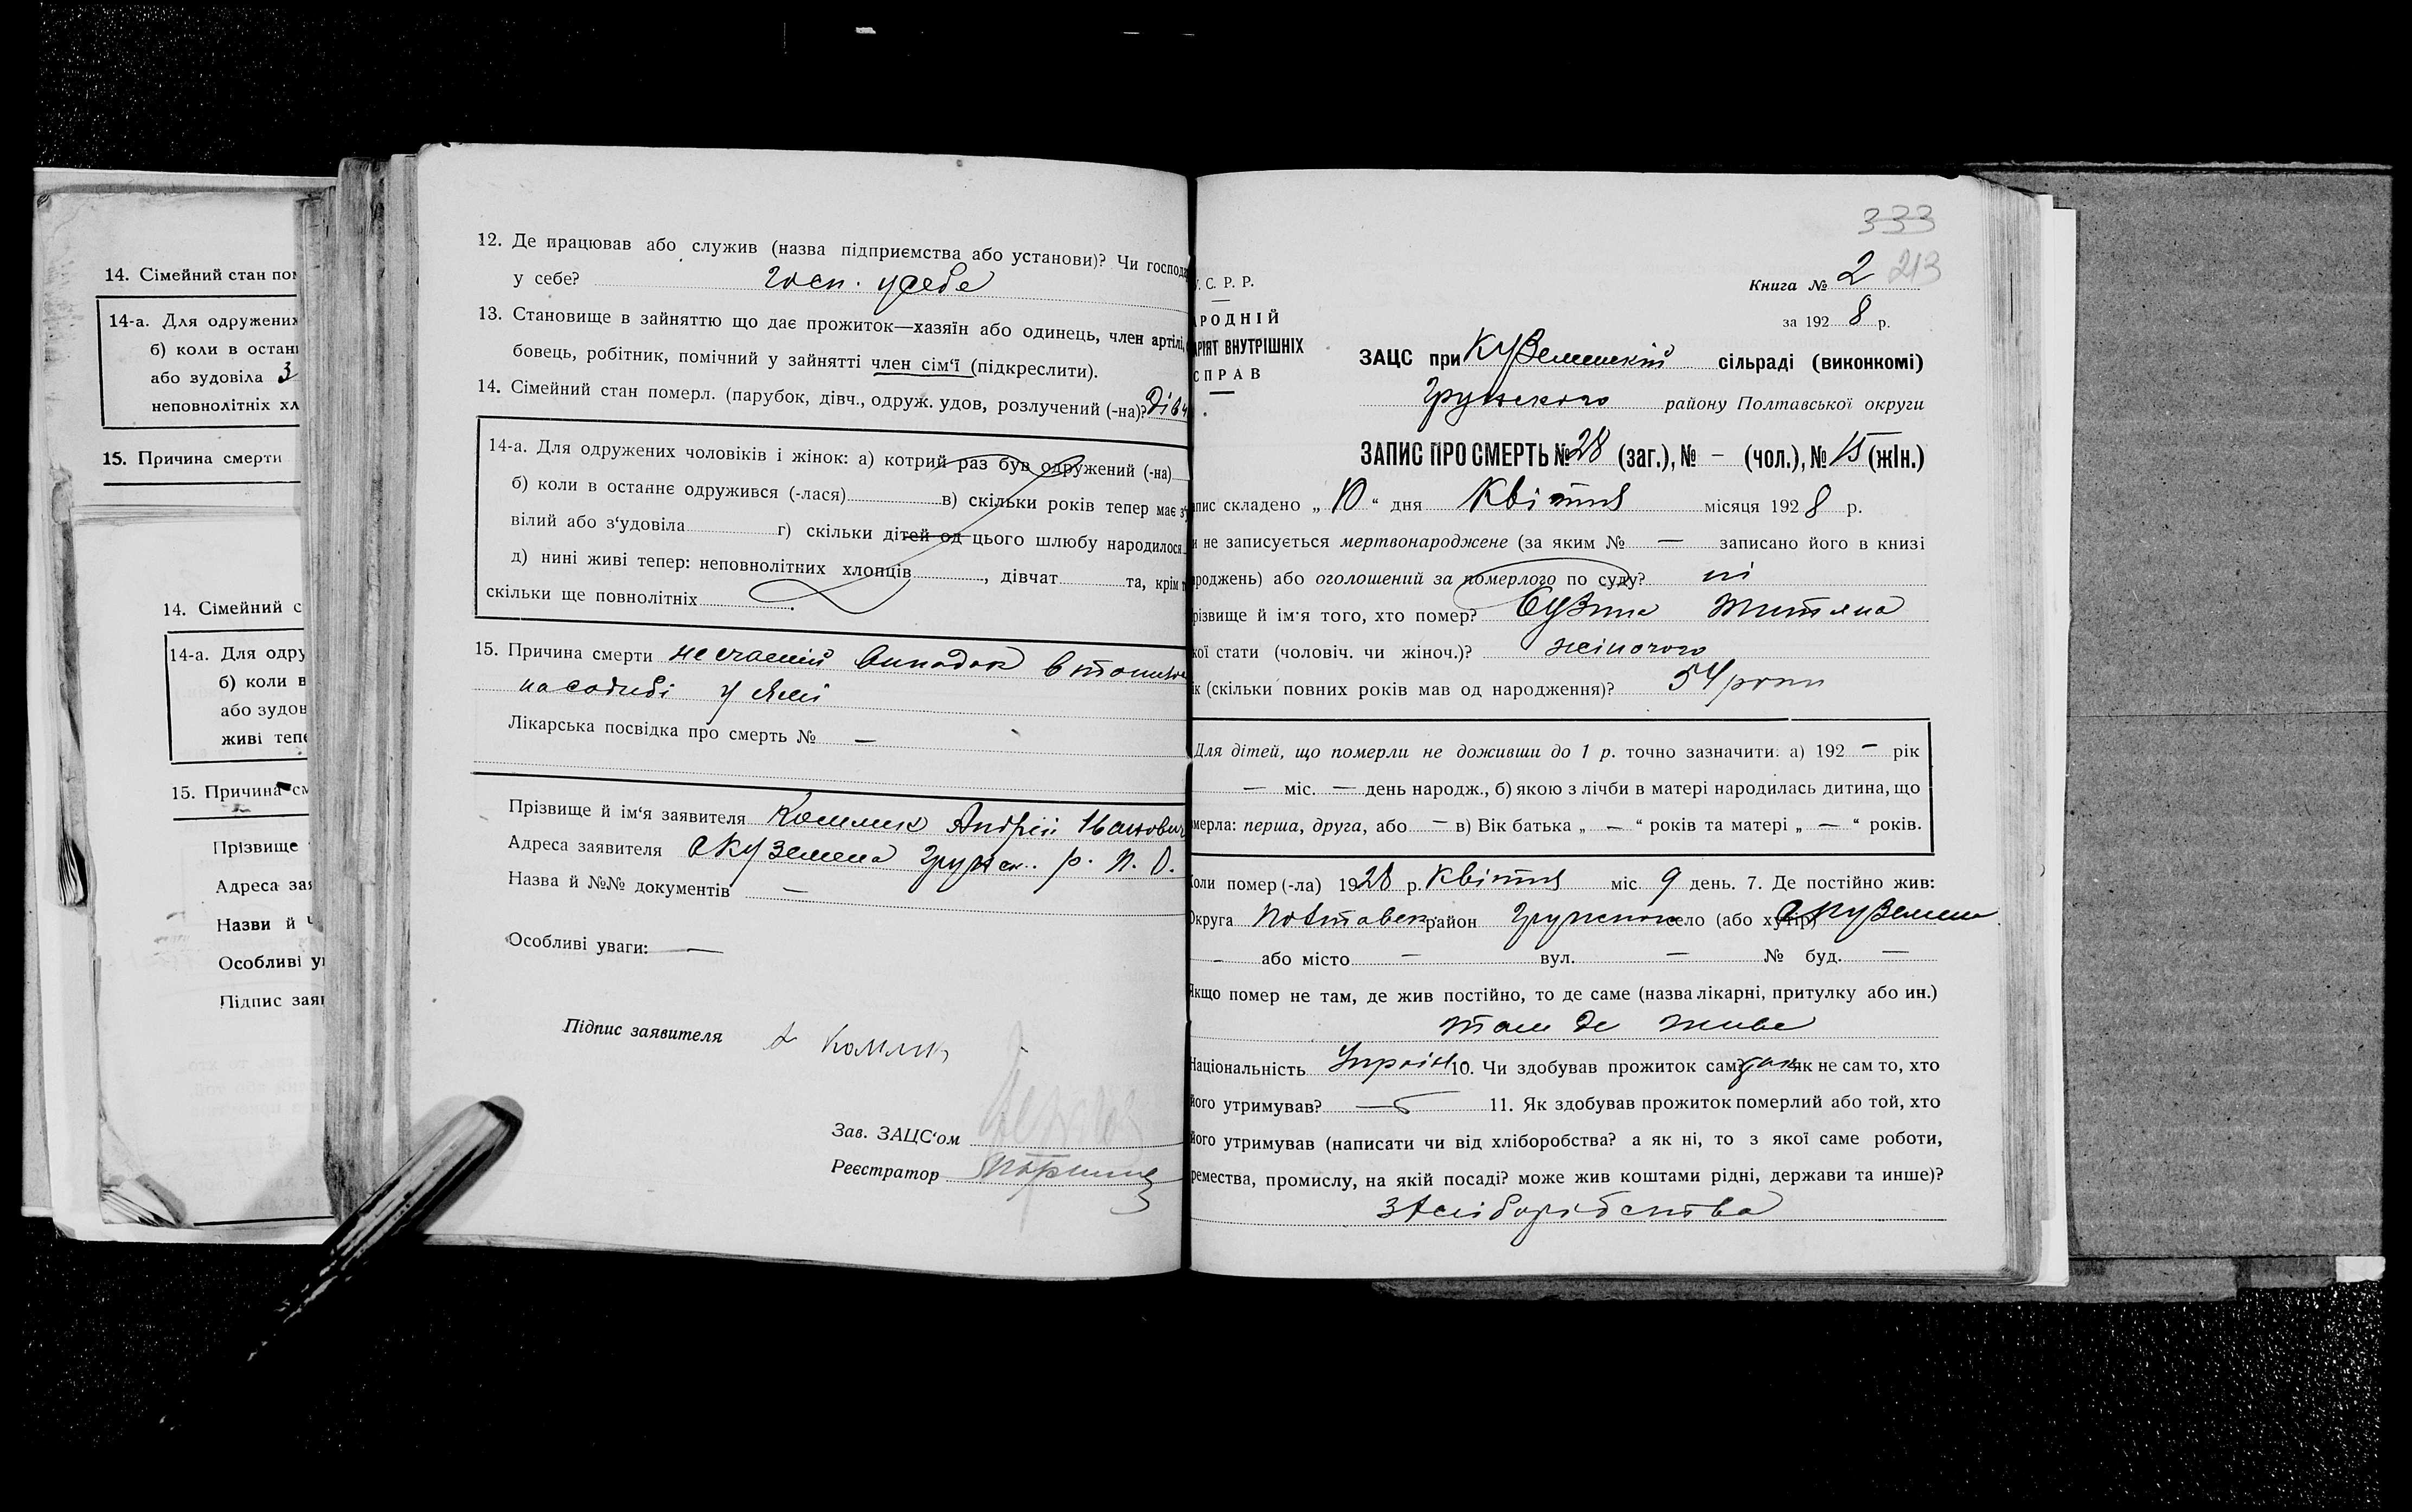 14. Сімейний стан пом
14-а. Для одружених
б) коли в останн
або зудовіла З
неповнолітніх хл
15. Причина смерти
14. Сімейний с
14-а. Для одру
б) коли в
або зудов
живі тепе
15. Причина см
Прізвище
Адреса зая
Назви й
Особливі у
Підпис заяв
12. Де працював або служив (назва підприємства або установи)? Чи господа
у себе? госп. у себе
13. Становище в зайняттю що дає прожиток—хазяїн або одинець, член артілі,
бовець, робітник, помічний у зайнятті член сім‘ї (підкреслити).
14. Сімейний стан померл. (парубок, дівч., одруж. удов, розлучений (-на)? Дівч
14-а. Для одружених чоловіків і жінок: а) котрий раз був одружений (-на)
б) коли в останнє одружився (-лася) в) скільки років тепер має з‘у
вілий або з‘удовіла г) скільки дітей од цього шлюбу народилося
д) нині живі тепер: неповнолітних хлопців , дівчат та, крім т
скільки ще повнолітніх .
15. Причина смерти нещасний випадок втопилась
на садибі у ямі
Лікарська посвідка про смерть № —
Прізвище й ім‘я заявителя Комлик Андрій Іванович
Адреса заявителя с Куземена Грунськ. р. П. О.
Назва й №№ документів —
Особливі уваги: —
Підпис заявителя А Комлик
Зав. ЗАЦС‘ом
Реєстратор
333
Книга № 2 213
за 192 8 р.
У. С. Р. Р.
АРОДНІЙ
АРІЯТ ВНУТРІШНІХ
СПРАВ
ЗАЦС при Куземинській сільраді (виконкомі)
Грунського району Полтавської округи
ЗАПИС ПРО СМЕРТЬ № 28 (заг.), № – (чол.), № 15 (жін.)
апис складено „ 10 “ дня Квітня місяця 192 8 р.
и не записується мертвонароджене (за яким № — записано його в книзі
ароджень) або оголошений за померлого по суду? ні
різвище й ім‘я того, хто помер? Бузина Титяна
кої стати (чоловіч. чи жіноч.)? жіночого
ік (скільки повних років мав од народження)? 54 роки
Для дітей, що померли не доживши до 1 р. точно зазначити: а) 192 – рік
— міс. — день народж., б) якою з лічби в матері народилась дитина, що
мерла: перша, друга, або – в) Вік батька „ – “ років та матері „ – “ років.
Коли помер (-ла) 1928 р. Квітня міс. 9 день. 7. Де постійно жив:
Округа Полтавськ. район Грунськог село (або хутір) с Куземен
– або місто – вул. – № буд. —
Якщо помер не там, де жив постійно, то де саме (назва лікарні, притулку або ин.)
там де живе
Національність Україн 10. Чи здобував прожиток сам? так як не сам то, хто
його утримував? — 11. Як здобував прожиток померлий або той, хто
його утримував (написати чи від хліборобства? а як ні, то з якої саме роботи,
ремества, промислу, на якій посаді? може жив коштами рідні, держави та инше)?
з хліборобства